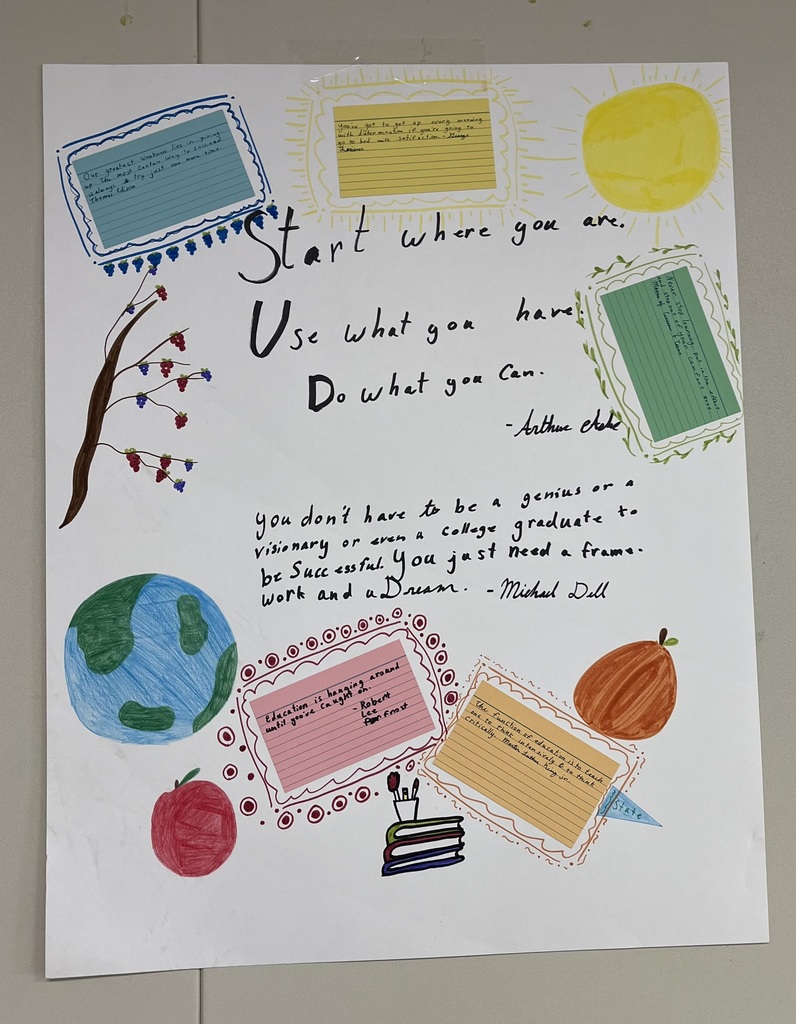 Our greatest weakness lies in giving
up. The most certain way to succeed
is always to try just one more time.
Thomas Edison
You've got to get up every morning
with determination if you're going to
go to bed with satisfaction. - George
Lorimer
Start where you are.
Use what you have.
Do what you can.
- Arthur Ashe
Never stop learning, put in the effort
and step out of your comfort zone.
you don't have to be a genius or a
visionary or even a college graduate to
be Successful. You just need a frame-
work and a Dream. - Michael Dell
Education is hanging around
until you've caught on.
- Robert
Lee
Frost
The function of education is to teach
one to think intensively & to think
critically. Martin Luther King jr.
State